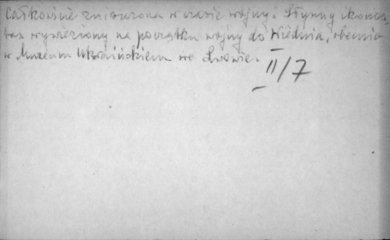 całkowicie zniszczona w czasie wojny. Słynny ikonos
tas wywieziony na początku wojny do Wiednia, obecnie
w Muzeum Ukraińskiem we Lwowie.
II/7